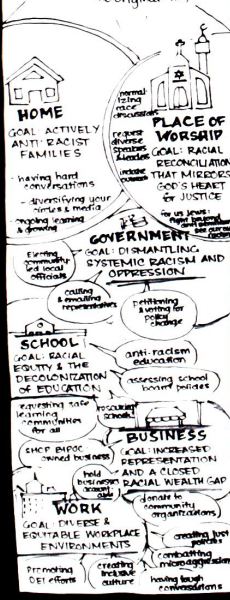 HOME
GOAL: ACTIVELY
ANTI-RACIST
FAMILIES
- having hard
conversations
- diversifying your
circles & media
- ongoing learning
& growing
normal-
izing
race
discussions
request
diverse
speakers
& leaders
include
outreach
PLACE OF
WORSHIP
GOAL: RACIAL
RECONCILIATION
THAT MIRRORS
GOD'S HEART
for JUSTICE
for us Jews:
GOVERNMENT
GOAL: DISMANTLING
SYSTEMIC RACISM AND
OPPRESSION
Electing
community-
led local
officials
calling
& emailing
representatives
Petitioning
& voting for
policy
change
SCHOOL
GOAL: RACIAL
EQUITY & THE
DECOLONIZATION
OF EDUCATION
anti-racism
education
assessing school
board policies
requesting safe
learning
communities
for all
resourcing
schools
BUSINESS
GOAL: INCREASED
REPRESENTATION
AND A CLOSED
RACIAL WEALTH GAP
SHOP BIPOC
owned business
hold
businesses
WORK
GOAL: DIVERSE &
EQUITABLE WORKPLACE
ENVIRONMENTS
donate to
community
organizations
creating just
policies
combatting
microaggressions
Promoting
DEI efforts
creating
inclusive
culture
having tough
conversations